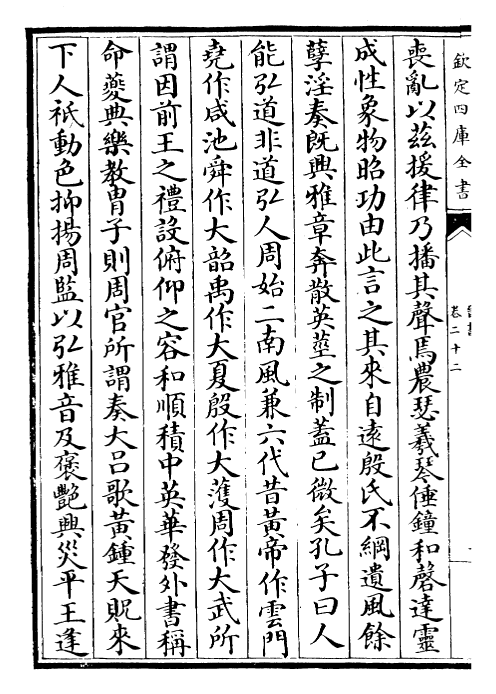 欽定四庫全書
卷二十二
喪亂以茲援律乃播其聲焉農瑟羲琴倕鐘和磬達靈
成性象物昭功由此言之其來自遠殷氏不綱遺風餘
孽淫奏既興雅章奔散英莖之制蓋已微矣孔子曰人
能弘道非道弘人周始二南風兼六代昔黃帝作雲門
堯作咸池舜作大韶禹作大夏殷作大濩周作大武所
謂因前王之禮設俯仰之容和順積中英華發外書稱
命夔典樂教胄子則周官所謂奏大呂歌黃鍾天貺來
下人祇動色抑揚周監以弘雅音及褒艷興災平王逢